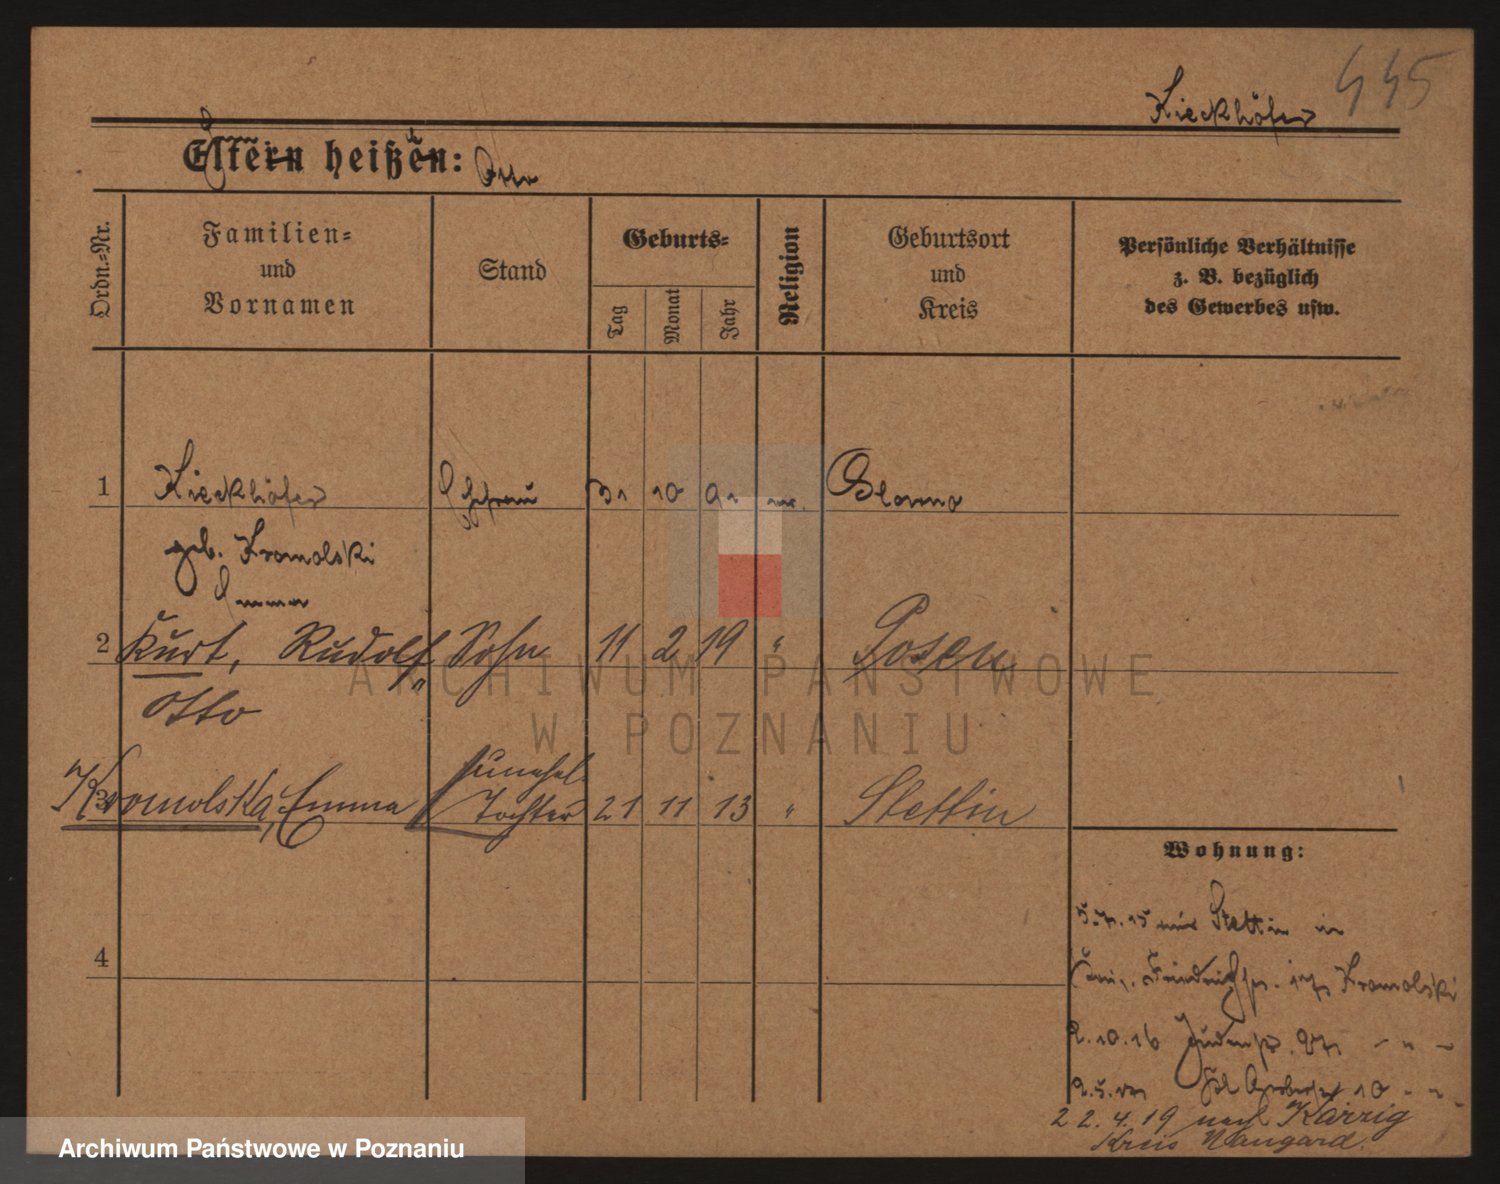 445
Kieckhöfer
Eltern heißen: Otto
Ordn.-Nr.
Familien-
und
Vornamen
Stand
Geburts-
Tag
Monat
Jahr
Religion
Geburtsort
und
Kreis
Persönliche Verhältnisse
z. B. bezüglich
des Gewerbes usw.
1 Kieckhöfer Ehefrau 31 10 91 ev. Blonno
geb. Kromolski
Emma
2 Kurt, Rudolf, Sohn 11 2 19 " Posen
Otto
unehel.
3 Kromolska, Emma Tochter 21 11 13 " Stettin
4
Wohnung:
5.7.15 aus Stettin in
Friedrichstr. Kromolski
2.10.16 Judenstr. 27 - " -
2.5. 10 - " -
22.4.19 nach Karzig
Kreis Naugard.
ARCHIWUM PAŃSTWOWE
W POZNANIU
Archiwum Państwowe w Poznaniu